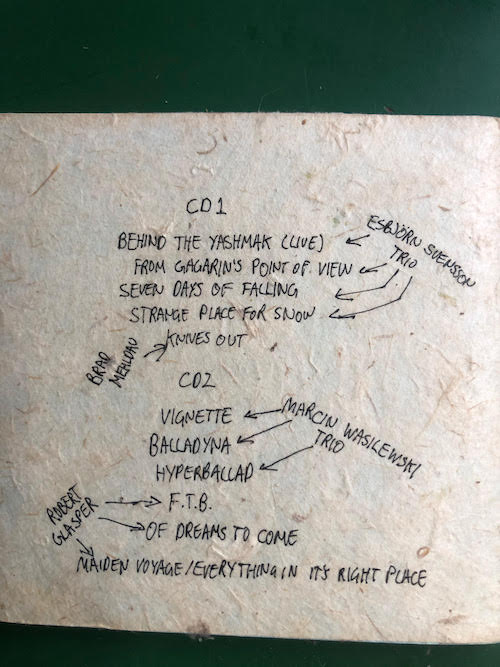 CD1
BEHIND THE YASHMAK (LIVE)
ESBJÖRN SVENSSON
TRIO
FROM GAGARIN'S POINT OF VIEW
SEVEN DAYS OF FALLING
STRANGE PLACE FOR SNOW
KNIVES OUT
BRAD
MEHLDAU
CD2
VIGNETTE
MARCIN WASILEWSKI
TRIO
BALLADYNA
HYPERBALLAD
ROBERT
GLASPER
F.T.B.
OF DREAMS TO COME
MAIDEN VOYAGE/EVERYTHING IN ITS RIGHT PLACE